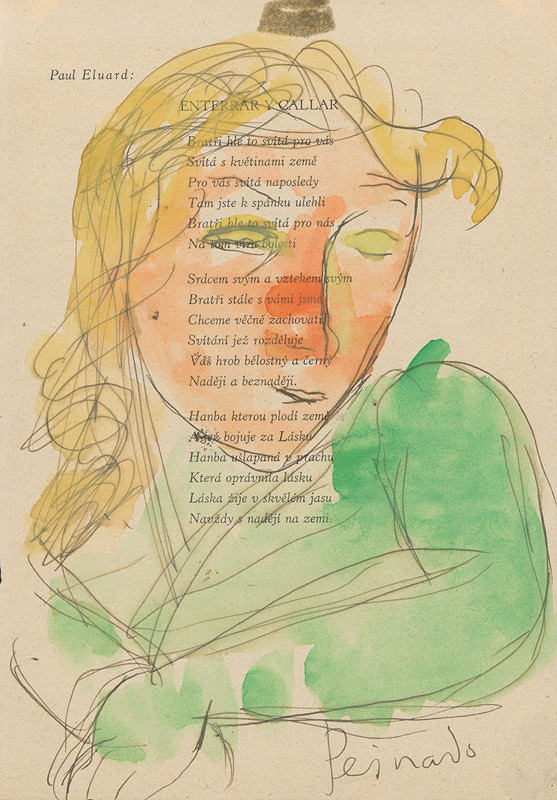 Paul Eluard:
ENTERRAR Y CALLAR
Bratři hle to svítá pro vás
Svítá s květinami země
Pro vás svítá naposledy
Tam jste k spánku ulehli
Bratři hle to svítá pro nás
Na tom víru bolesti
Srdcem svým a vztekem svým
Bratři stále s vámi jsme
Chceme věčně zachovati
Svítání jež rozděluje
Váš hrob bělostný a černý
Naději a beznaději.
Hanba kterou plodí země
bojuje za Lásku
Hanba ušlapaná v prachu
Která oprávnila lásku
Láska žije v skvělém jasu
Navždy s nadějí na zemi.
Peinado